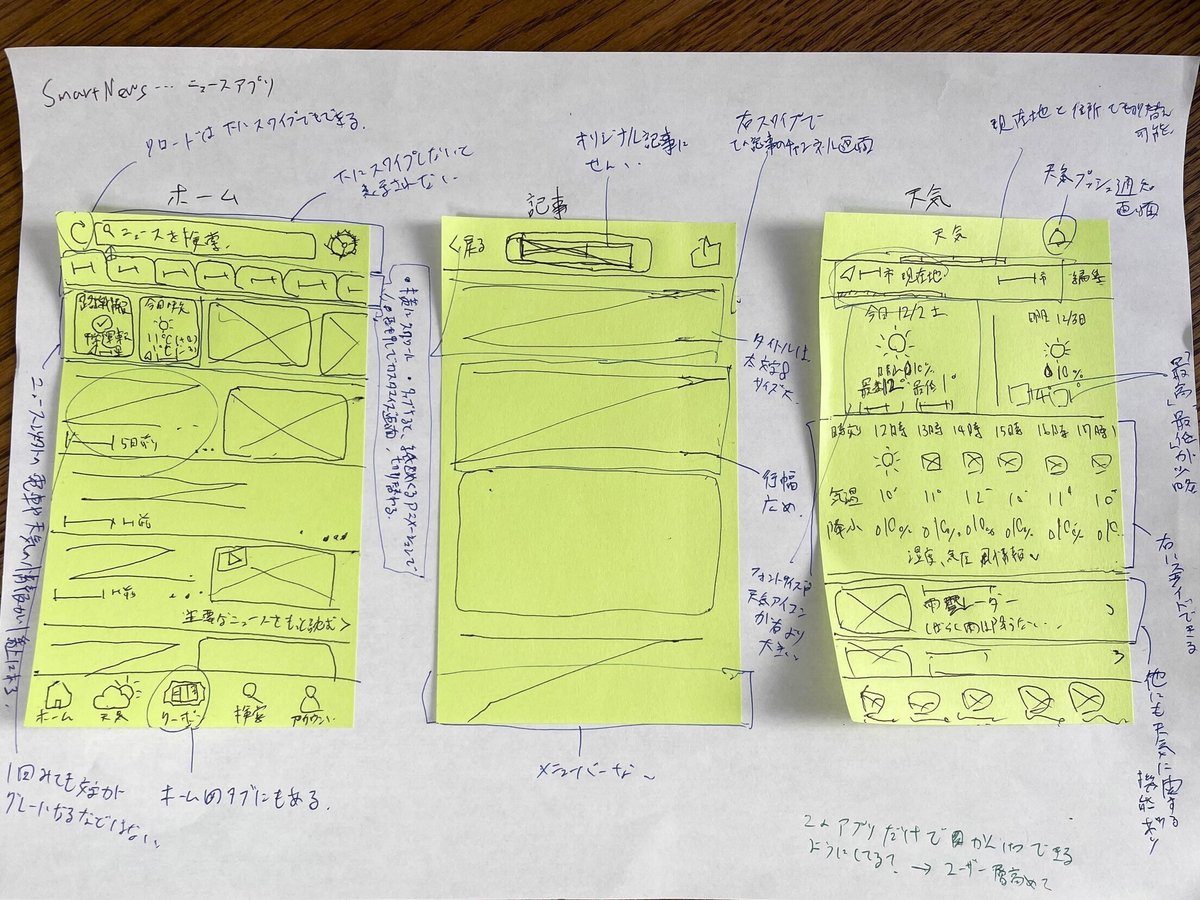 SmartNews… ニュースアプリ
リロードは下にスワイプでもできる.
下にスワイプしないと
表示されない
オリジナル記事に
右スワイプで
現在地と住所でも切替え
可能.
天気プッシュ通知
画面
ホーム
ニュースを検索.
今日の天気
11℃
5日前
主要なニュースをもっと読む >
ホーム
天気
クーポン
検索
アカウント
・横にスクロール
・タップすると、紙をめくるアニメーションで
切り替わる.
ニュース以外の電車や天気の情報が一番上にある
1回みても文字が
グレーになるなどはない。
ホームのタブにもある.
記事
<戻る
タイトルは
太文字&
サイズ大
行幅
広め.
フォントサイズや
天気アイコン
が右より
大きい
メニューバーなし
天気
天気
市 現在地
市
編集
今日 12/2 土
10%
最高12° 最低1°
明日 12/3日
10%
14°
時刻 12時 13時 14時 15時 16時 17時
気温 10° 11° 12° 10° 11° 10°
降水
湿度、気圧 風情報
雨雲レーダー
「最高」「最低」が省略
右にスライドできる
他にも天気に関する
機能あり
このアプリだけでかんけつできる
ようにしてる? → ユーザー層高めて